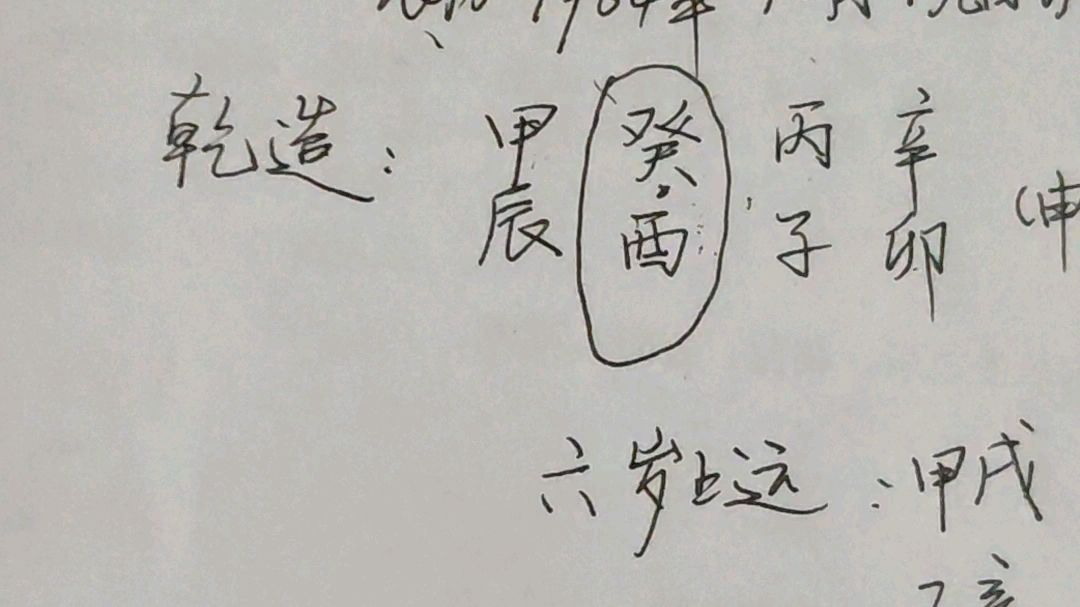 1964年
乾造：甲 癸 丙 辛
辰 酉 子 卯 (申
六岁上运：甲戌